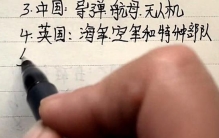 3.中国：导弹航母无人机
4.英国：海军空军和特种部队